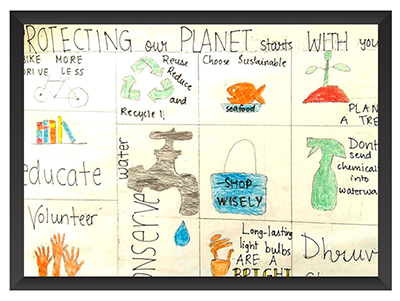 PROTECTING our PLANET starts WITH you
BIKE MORE
DRIVE LESS
Reuse
Reduce
and
Recycle!!
Choose Sustainable
seafood
PLAN
A TRE
educate
water
conserve
SHOP
WISELY
Dont
send
chemical
into
waterwa
Volunteer
Long-lasting
light bulbs
ARE A
BRIGHT
Dhruv